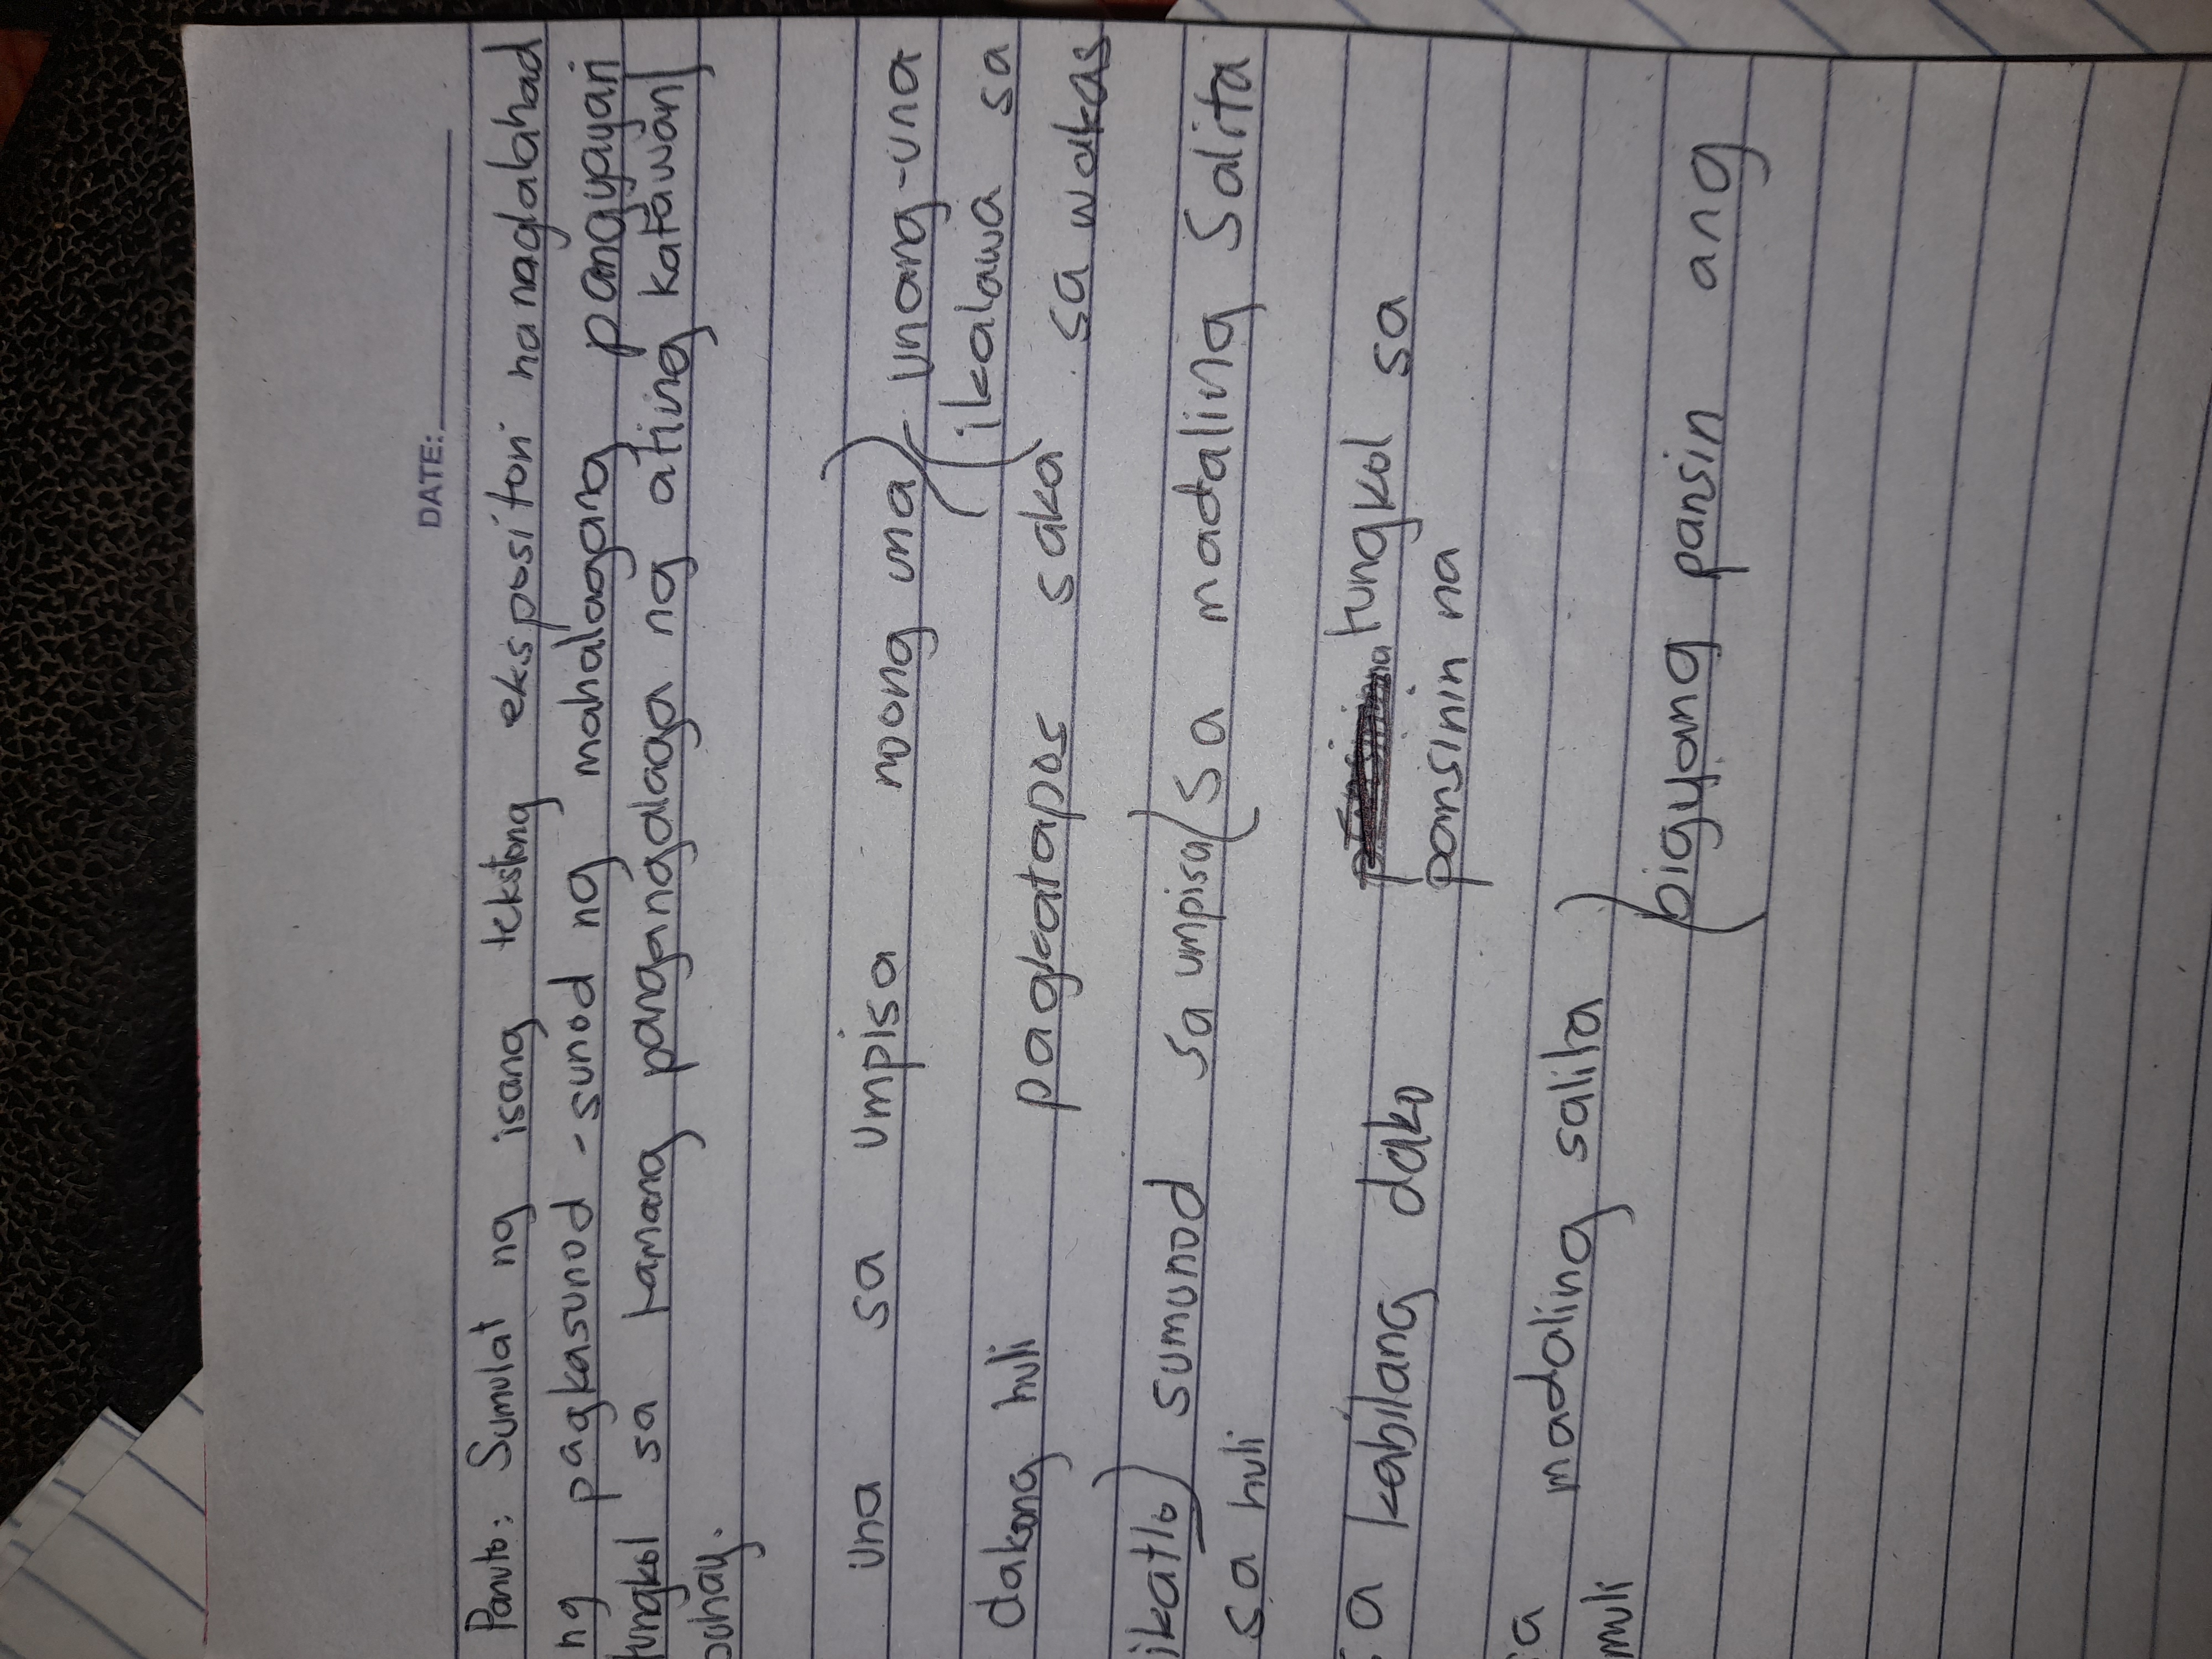 DATE:
Panuto: Sumulat ng isang tekstong ekspositori na naglalahad
ng pagkasunod-sunod ng mahalagang pangyayari
tungkol sa tamang pangangalaga ng ating katawan/
buhay.
una sa umpisa noong una unang-una
ikalawa sa
dakong huli pagkatapos saka sa wakas
ikatlo sumunod sa umpisa sa madaling salita
sa huli
sa kabilang dako tungkol sa
pansinin na
sa madaling salita
muli
bigyang pansin ang